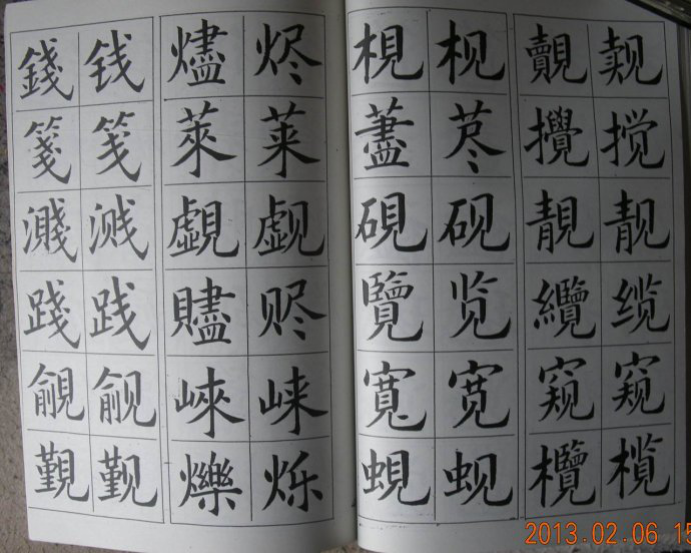 錢 钱 燼 烬 梘 枧 覿 觌
箋 笺 萊 莱 藎 荩 攪 搅
濺 溅 覷 觑 硯 砚 靚 靓
踐 践 贐 赆 覽 览 纜 缆
覦 觎 崍 崃 寬 宽 窺 窥
覲 觐 爍 烁 蜆 蚬 欖 榄
2013.02.06 15